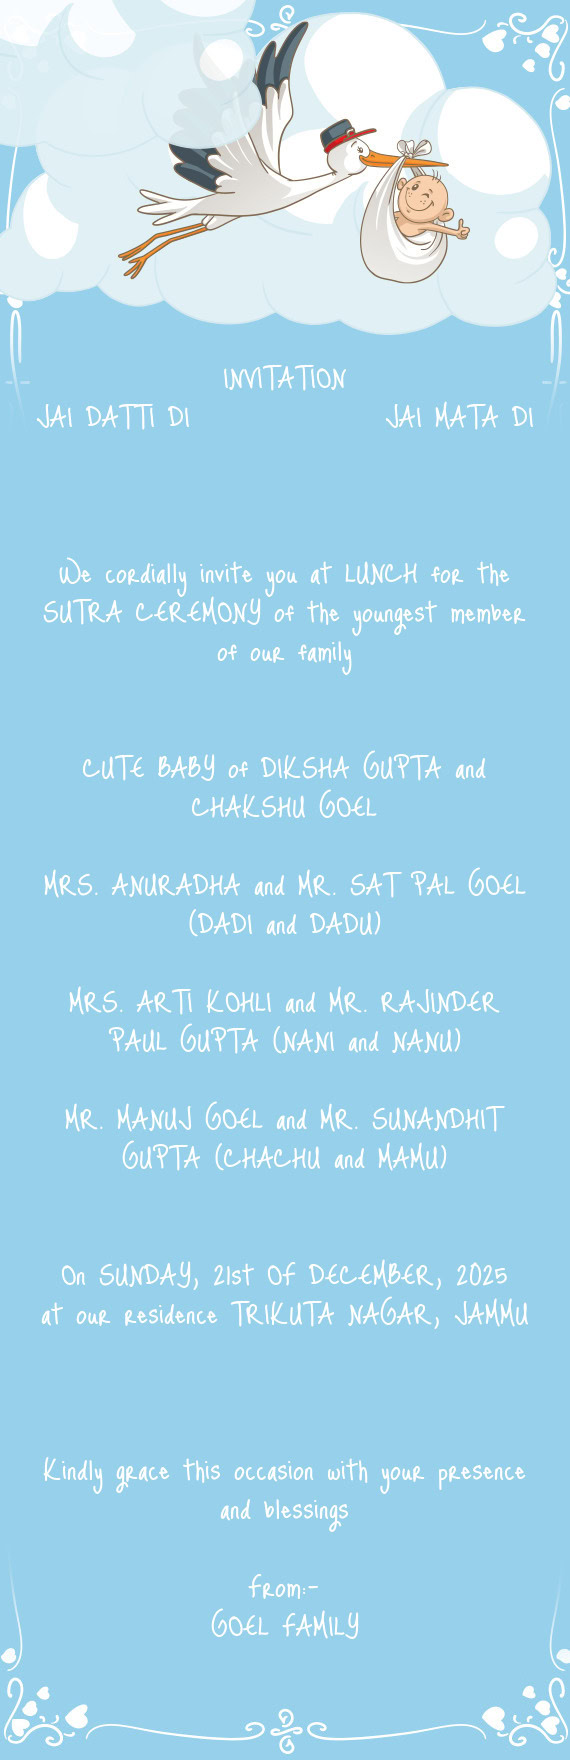 INVITATION
JAI DATTI DI JAI MATA DI
We cordially invite you at LUNCH for the
SUTRA CEREMONY of the youngest member
of our family
CUTE BABY of DIKSHA GUPTA and
CHAKSHU GOEL
MRS. ANURADHA and MR. SAT PAL GOEL
(DADI and DADU)
MRS. ARTI KOHLI and MR. RAJINDER
PAUL GUPTA (NANI and NANU)
MR. MANUJ GOEL and MR. SUNANDHIT
GUPTA (CHACHU and MAMU)
On SUNDAY, 21st OF DECEMBER, 2025
at our residence TRIKUTA NAGAR, JAMMU
Kindly grace this occasion with your presence
and blessings
from:-
GOEL FAMILY